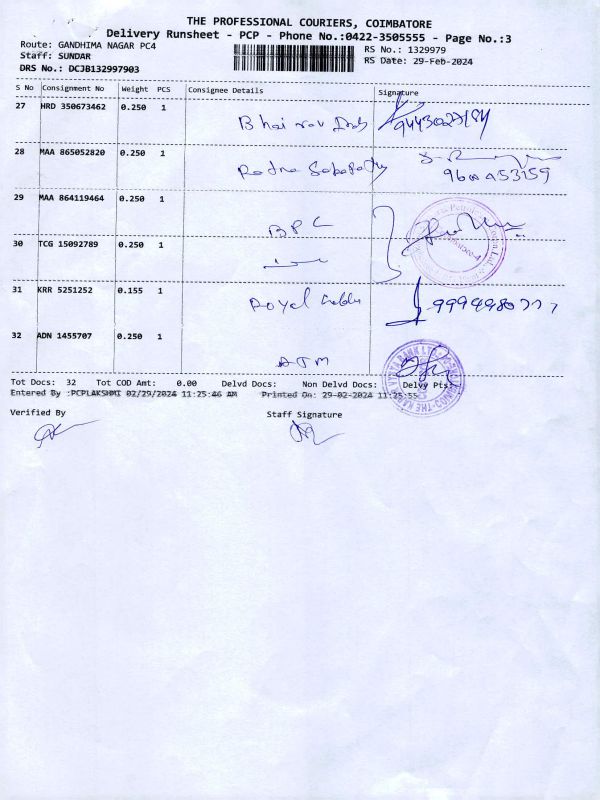 THE PROFESSIONAL COURIERS, COIMBATORE
Delivery Runsheet - PCP - Phone No.:0422-3505555 - Page No.:3
Route: GANDHIMA NAGAR PC4
RS No.: 1329979
Staff: SUNDAR
RS Date: 29-Feb-2024
DRS No.: DCJB132997903
S No Consignment No Weight PCS Consignee Details Signature
27 HRD 350673462 0.250 1
Bhairav
28 MAA 865052820 0.250 1
Ratna Sabapathy
29 MAA 864119464 0.250 1
BPC
30 TCG 15092789 0.250 1
31 KRR 5251252 0.155 1
Royal 9994980777
32 ADN 1455707 0.250 1
ATM
Tot Docs: 32 Tot COD Amt: 0.00 Delvd Docs: Non Delvd Docs: Delvy Pts:
Entered By :PCPLAKSHMI 02/29/2024 11:25:46 AM Printed On: 29-02-2024 11:25:55
Verified By Staff Signature